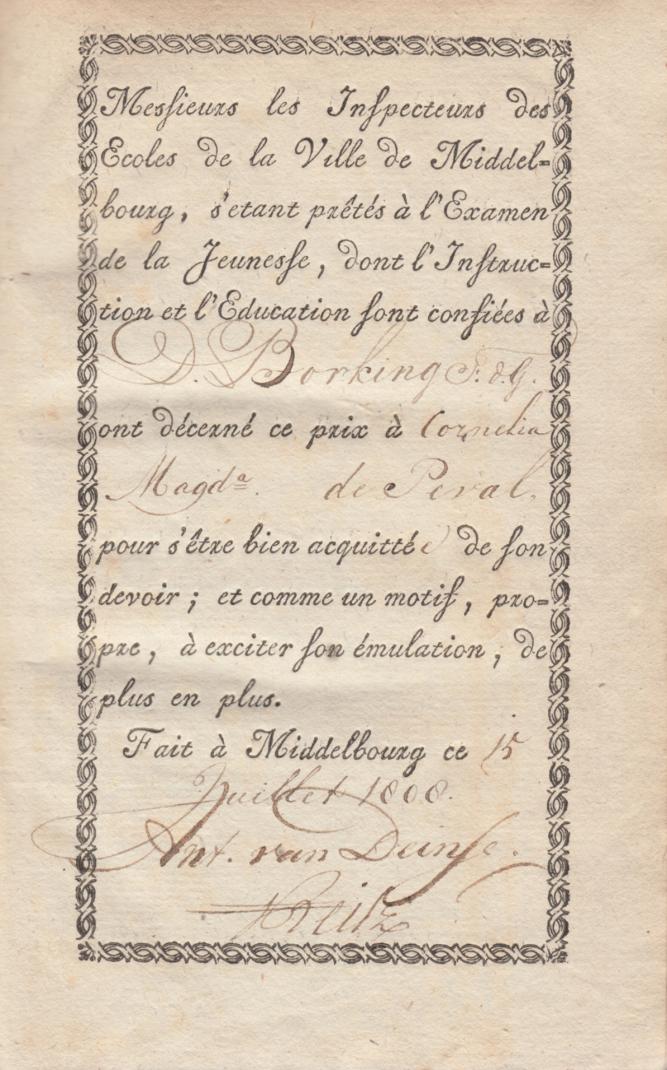 Meſsieurs les Inſpecteurs des
Ecoles de la Ville de Middel=
bourg, s'etant prêtés à l'Examen
de la Jeuneſse, dont l'Inſtruc=
tion et l'Education ſont confiées à
D. Borking S: d. G.
ont décerné ce prix à Cornelia
Magdª. de Peval.
pour s'être bien acquittée de ſon
devoir; et comme un motif, pro=
pre, à exciter ſon émulation, de
plus en plus.
Fait à Middelbourg ce 15
Juillet 1808.
Ant. van Deinſe.